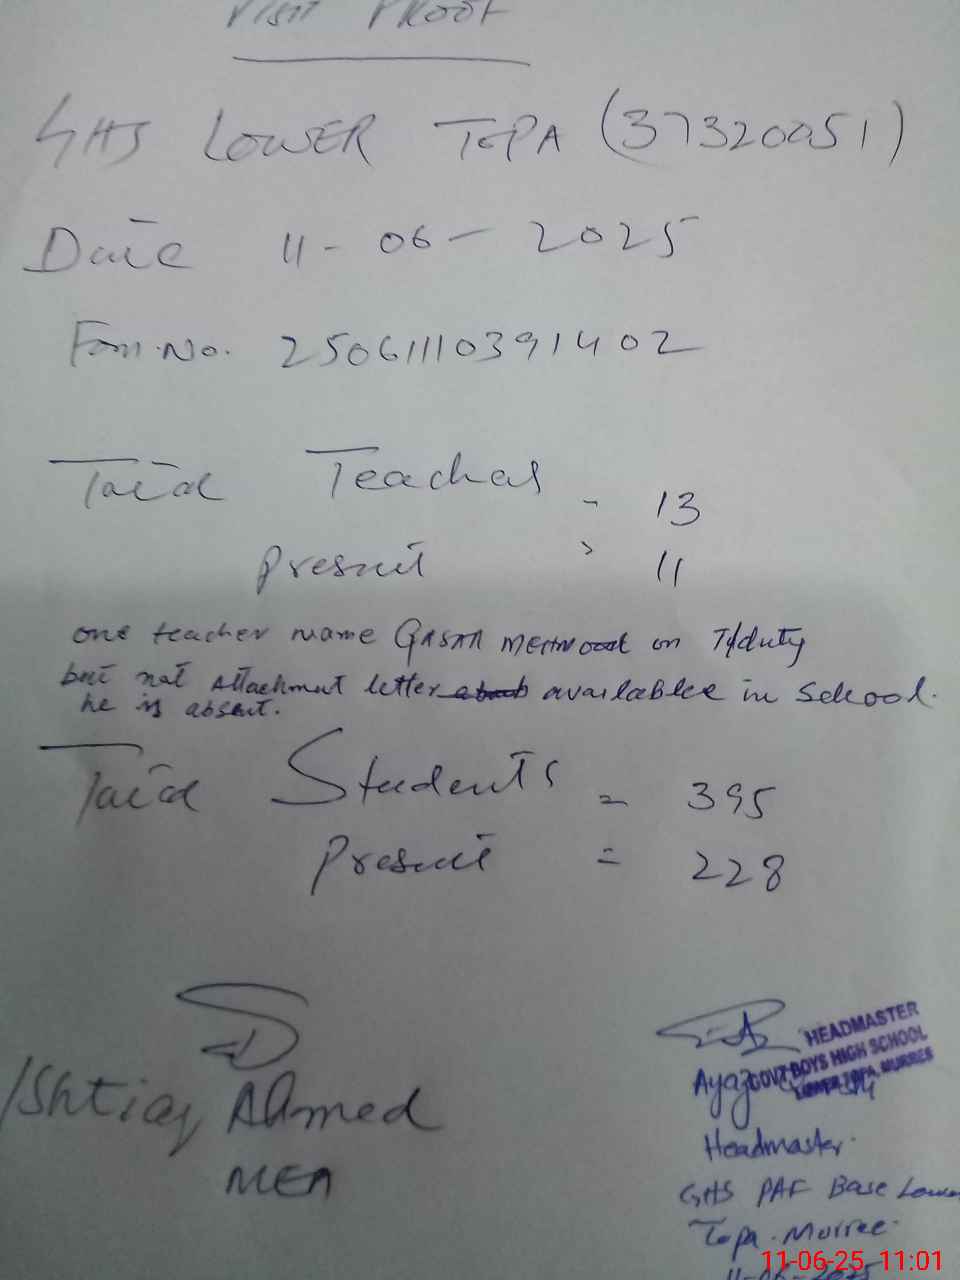 VISIT PROOF
GHS LOWER TOPA (37320051)
Date 11-06-2025
Form.No. 25061110391402
Total Teachers - 13
Present 11
one teacher name QASAR MEHMOOD on T/duty
but not attachment letter available in School.
he is absent.
Total Students = 395
Present = 228
Ishtiaq Ahmed
MEA
HEADMASTER
GOVT BOYS HIGH SCHOOL
LOWER TOPA, MURREE
Ayaz
Headmaster.
GHS PAF Base Lower
Topa. Murree.
11-06-2025
11-06-25 11:01